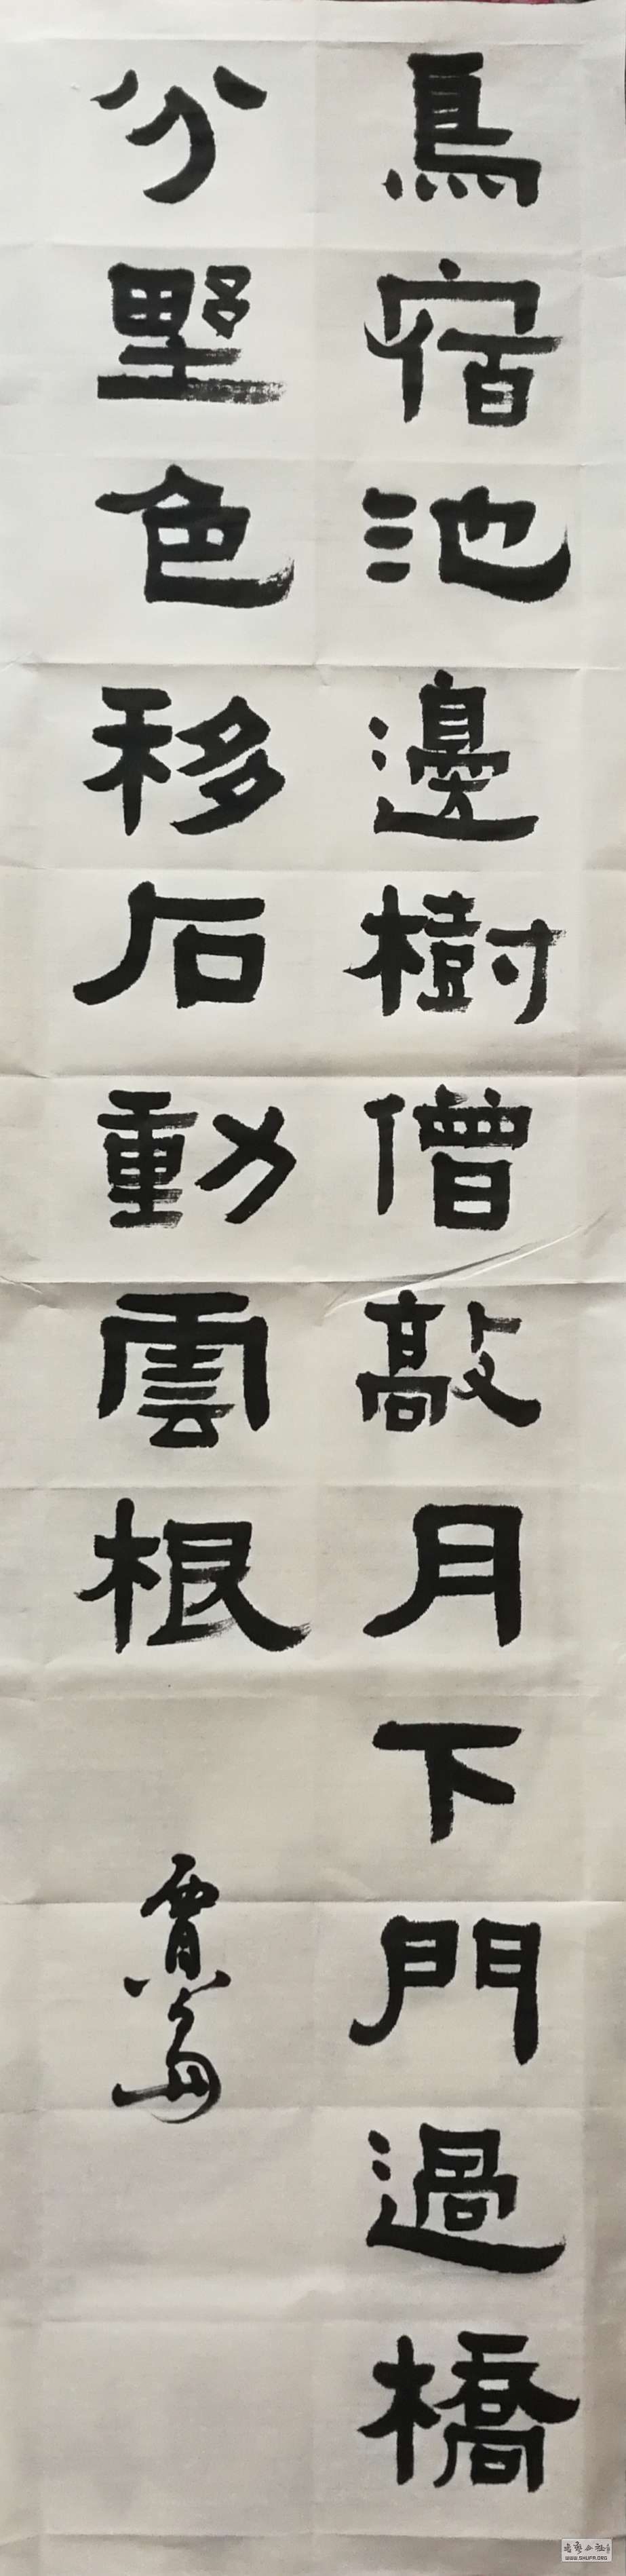 鳥宿池邊樹僧敲月下門過橋
分野色移石動雲根
賈島
WWW.SHUFA.ORG